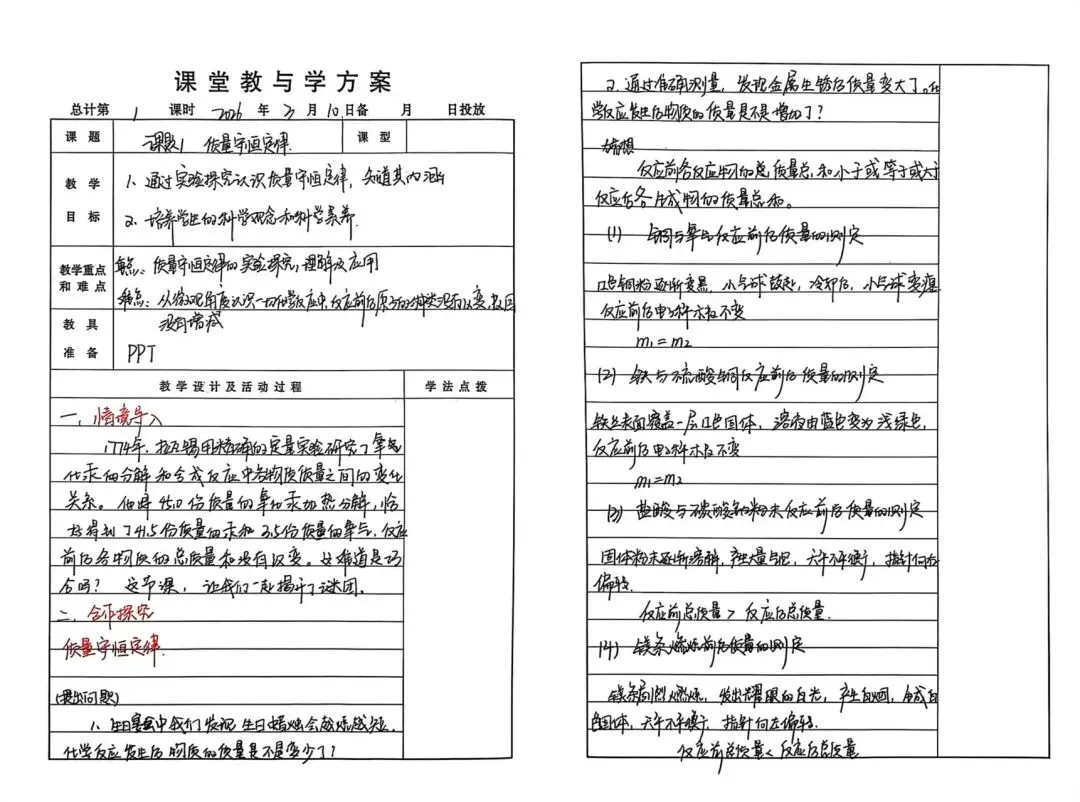 课堂教与学方案
总计第 1 课时 2026 年 3 月 10 日备 月 日投放
课题 课题1 质量守恒定律 课型
教学 1、通过实验探究认识质量守恒定律,知道其内涵
目标 2、培养学生的科学观念和科学素养
教学重点 重点:质量守恒定律的实验探究,理解及应用
和难点 难点:从微观角度认识一切化学反应中,反应前后原子的种类没有改变,数目
教具 没有增减
准备 PPT
教学设计及活动过程 学法点拨
一、情境导入
1774年,拉瓦锡用精确的定量实验研究了氧化
汞的分解和合成反应中各物质质量之间的变化
关系。他将45.0份质量的氧化汞加热分解,恰
好得到了41.5份质量的汞和3.5份质量的氧气,反应
前后各物质的总质量和没有改变。这难道是巧
合吗?这节课,让我们一起揭开了谜团。
二、合作探究
质量守恒定律
(提出问题)
1、生日宴中我们发现生日蜡烛会越烧越短,
化学反应发生后物质的质量是不是变少了?
2、通过准确测量,发现金属生锈后质量变大了。化
学反应发生后物质的质量是不是增加了?
猜想
反应前各反应物的总质量总和小于或等于或大于
反应后各生成物的质量总和。
(1) 铜与氧气反应前后质量的测定
红色铜粉逐渐变黑,小气球鼓起,冷却后,小气球变瘪
反应前后电子秤示数不变
m₁=m₂
(2) 铁与硫酸铜反应前后质量的测定
铁丝表面覆盖一层红色固体,溶液由蓝色变为浅绿色,
反应前后电子秤示数不变
m₁=m₂
(3) 盐酸与碳酸钠粉末反应前后质量的测定
固体粉末逐渐溶解,产生大量气泡,天平不平衡,指针向右
偏转
反应前总质量 > 反应后总质量
(4) 镁条燃烧前后质量的测定
镁条剧烈燃烧,发出耀眼的白光,产生白烟,生成白
色固体,天平不平衡,指针向左偏转。
反应前总质量 < 反应后总质量